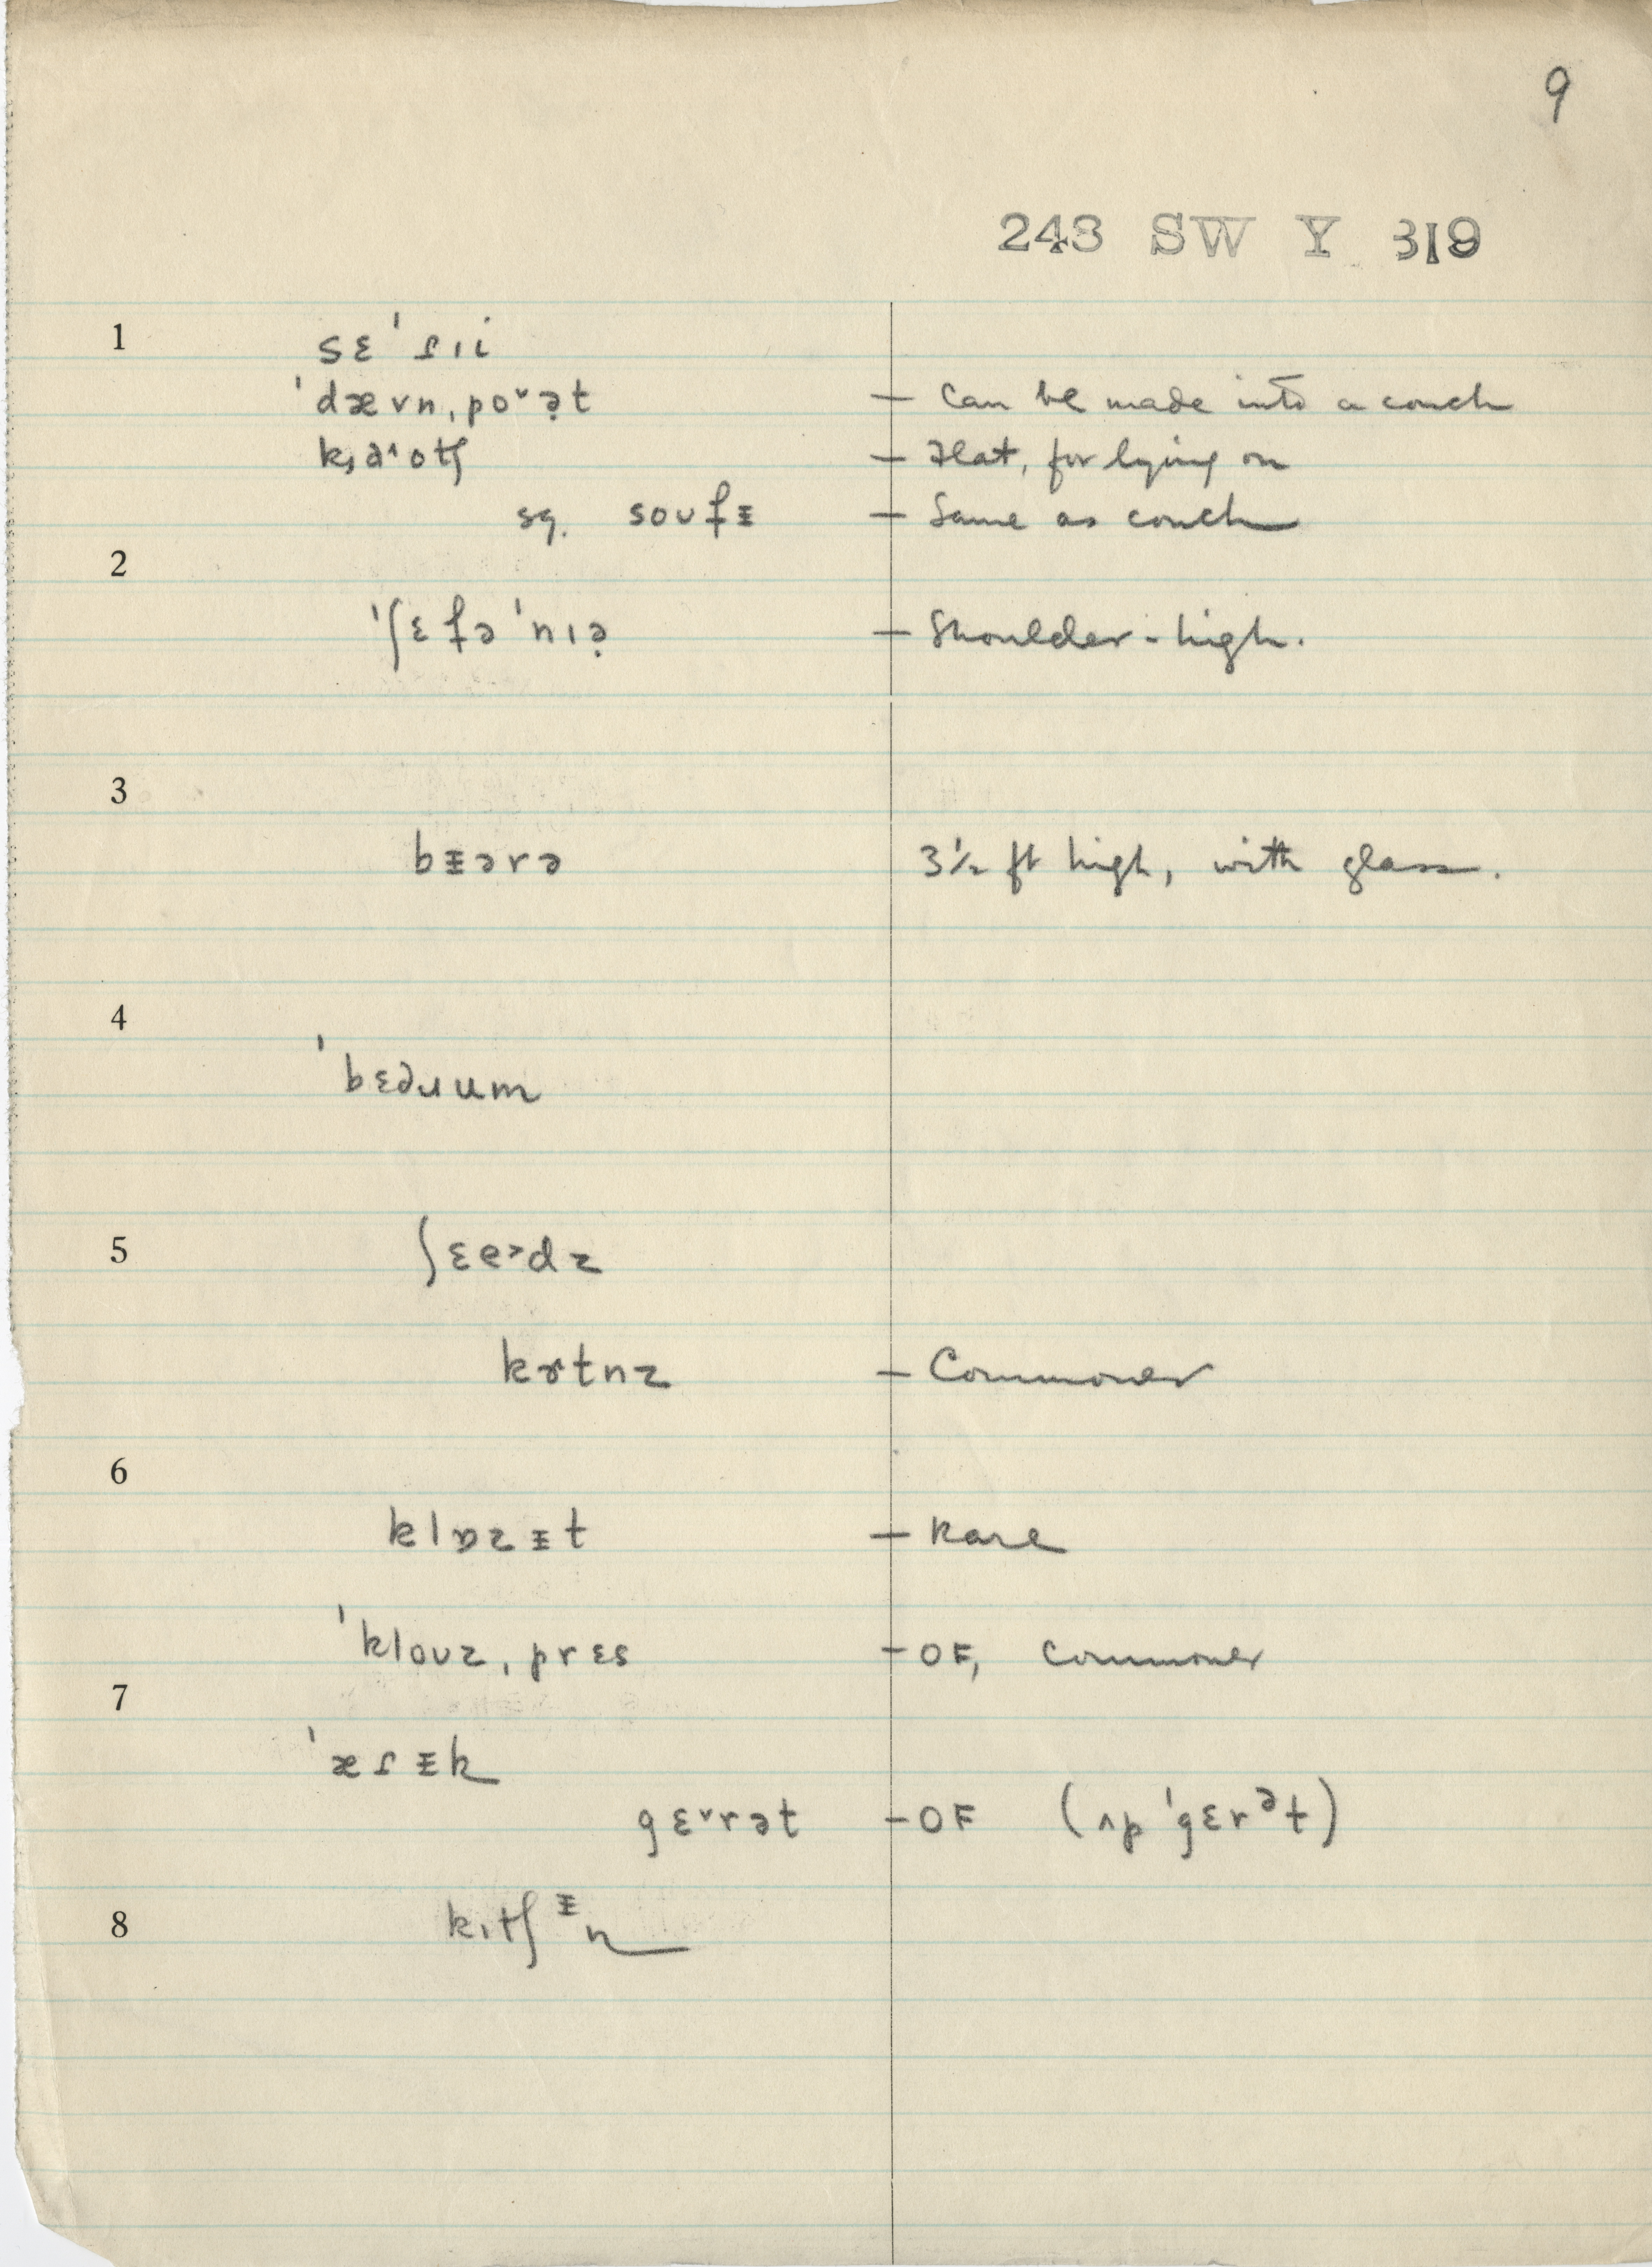 9
243 SW Y 319
1
sɛˈɾɪi
ˈdævnˌpoˇə̣t — Can be made into a couch
— Flat, for lying on
sq. soufᵻ — Same as couch
2
ˈʃɛfəˈnɪə̣ — Shoulder-high.
3
bᵻərə 3½ ft high, with glass.
4
5
kɚtnz — Commoner
6
klɒzᵻt — Rare
ˈklouzˌprɛs — OF, commoner
7
ˈæɾᵻk
gɛˇrət — OF (ʌpˈgɛrᵊt)
8
kɪtʃᵻn